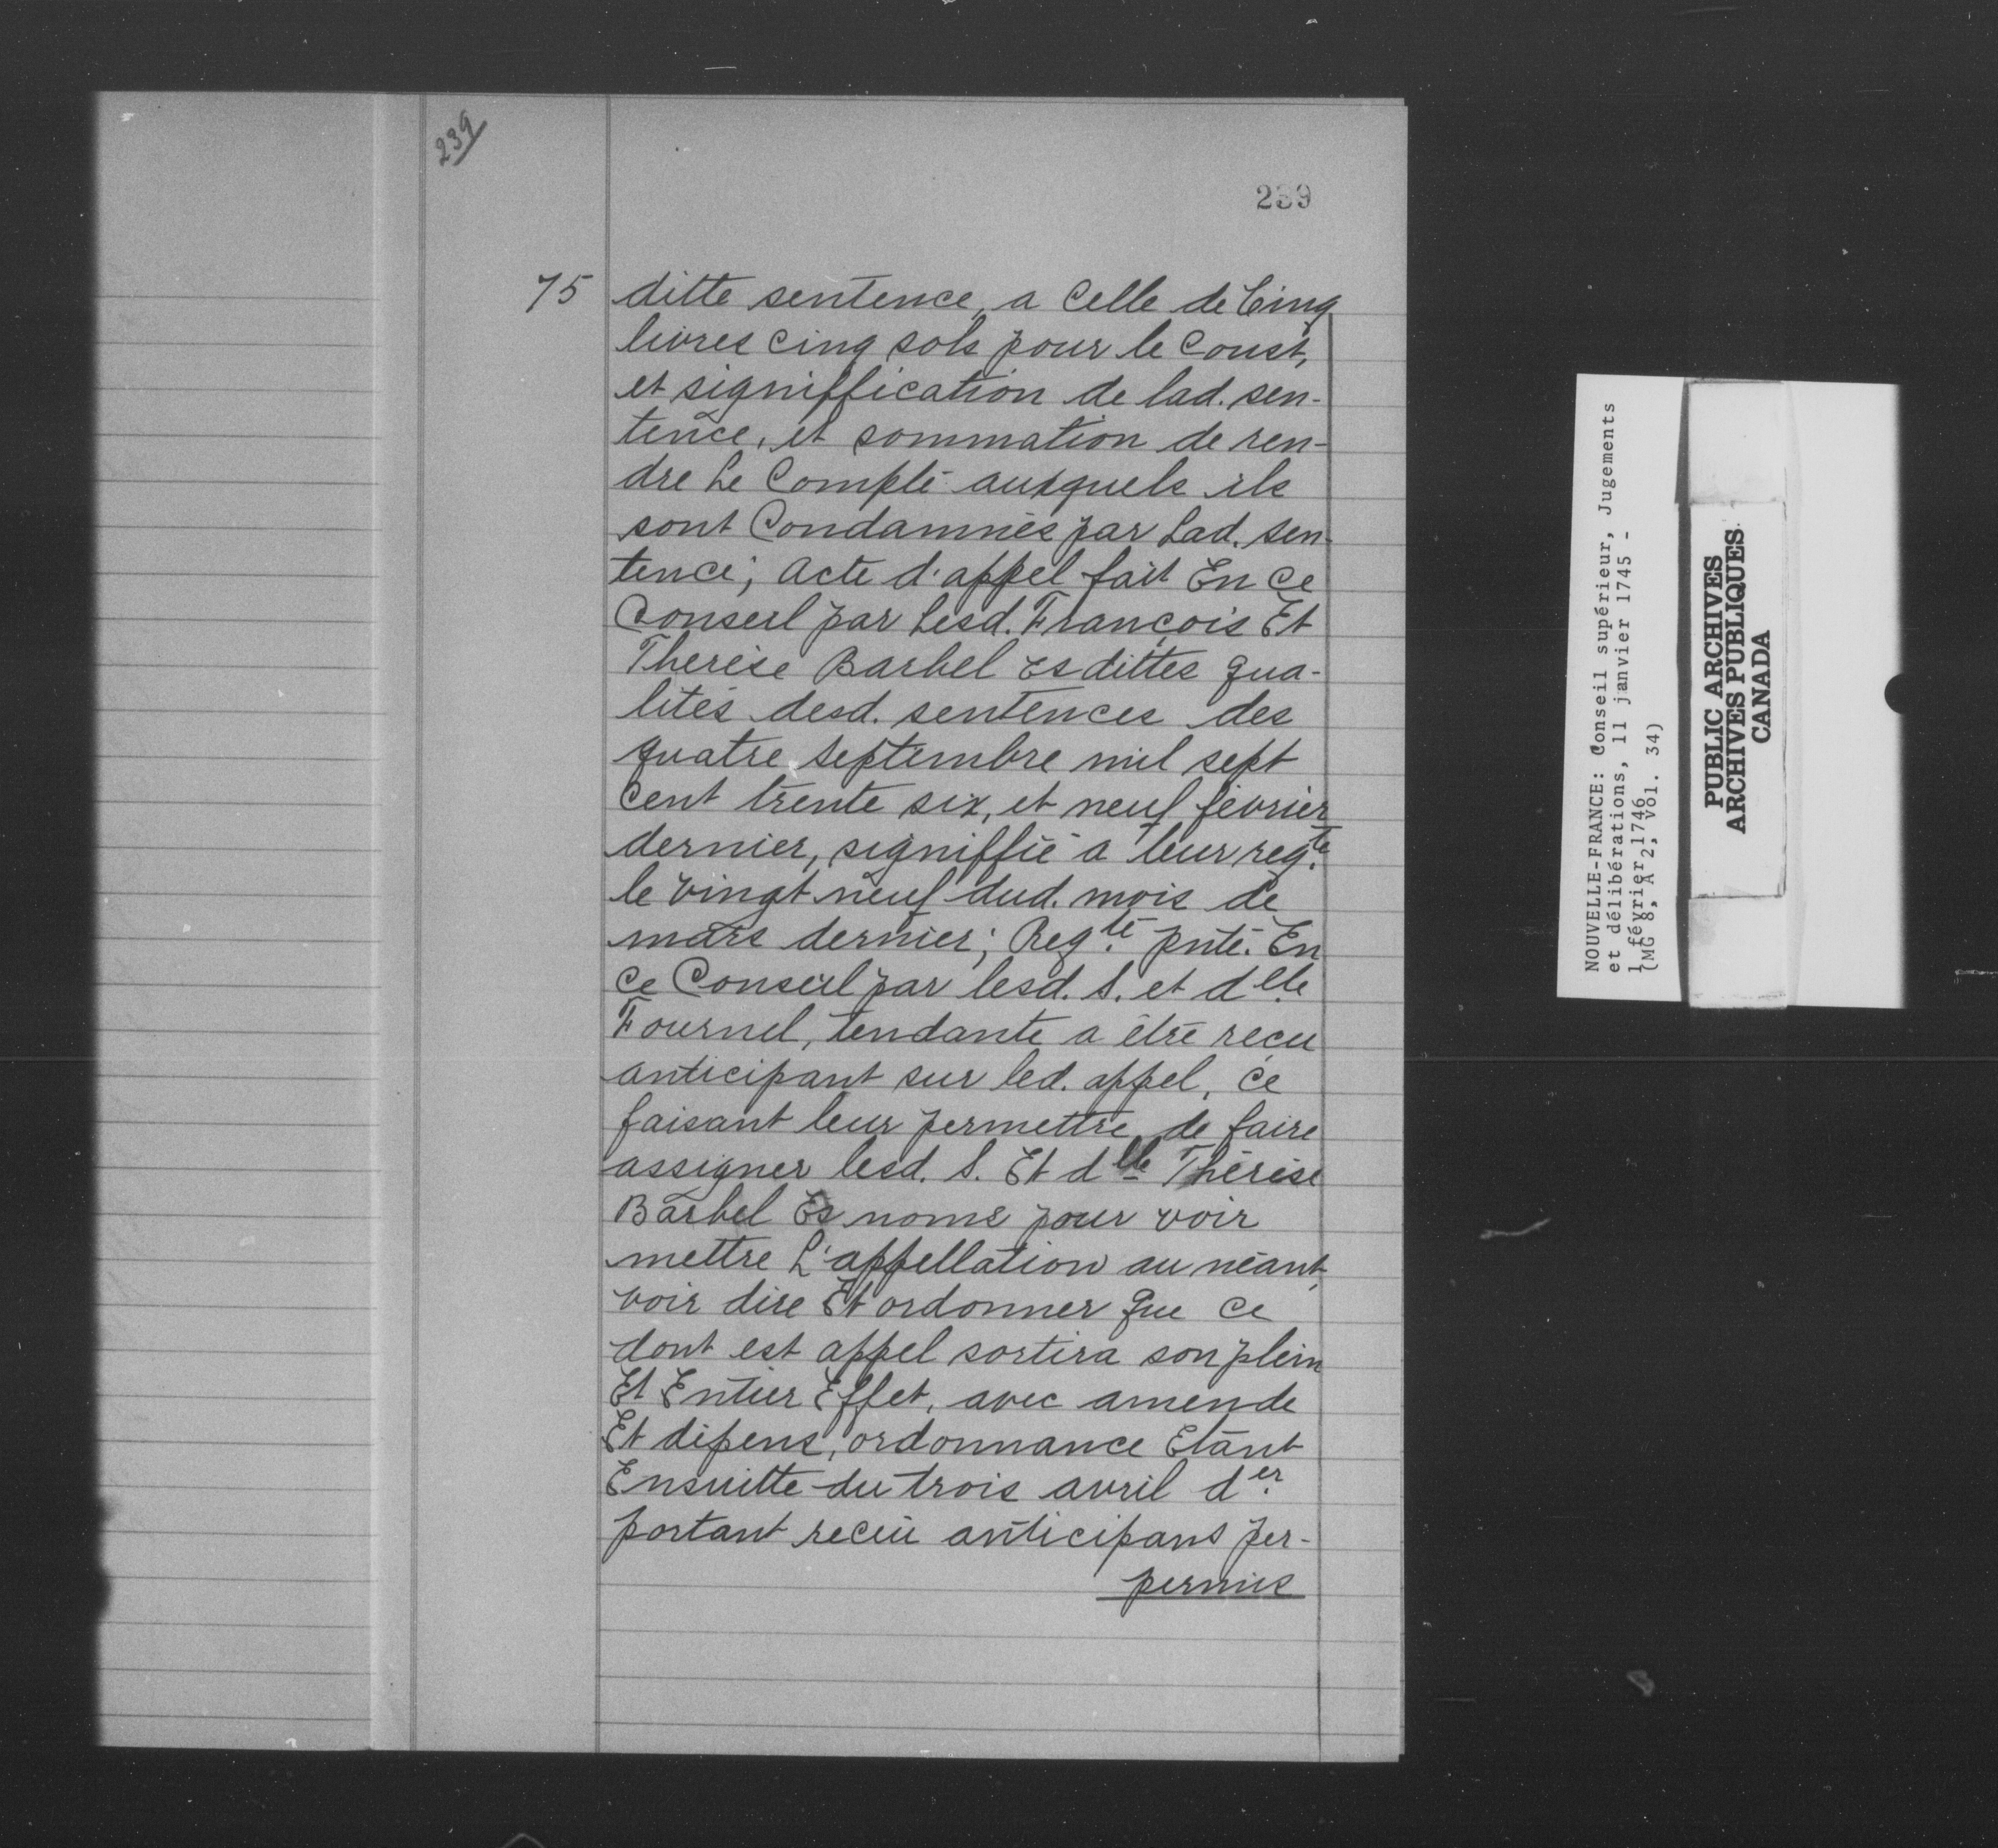 239
239
75 ditte sentence, a Celle de Cinq
livres cinq sols pour le Coust,
et signiffication de lad. sen-
tence, et sommation de ren-
dre Le Compte auxquels ils
sont Condamnés par Lad. sen-
tence; acte d'appel fait En ce
Conseil par Lesd. François Et
Therese Barbel Es dittes qua-
lités desd. sentences des
quatre septembre mil sept
cent trente six, et neuf février
dernier, signiffié a leur reqte.
le vingt neuf dud. mois de
mars dernier; Reqte. pnté. En
ce Conseil par lesd. S. et dlle
Fournel, tendante a être reçu
anticipant sur led. appel, ce
faisant leur permettre de faire
assigner lesd. S. Et dlle Thérèse
Barbel Es noms pour voir
mettre L'appellation au néant,
voir dire Et ordonner que ce
dont est appel sortira son plein
Et Entier Effet, avec amende
Et dépens, ordonnance Etant
Ensuitte du trois avril der.
portant reçeu anticipans per-
permis
NOUVELLE-FRANCE: Conseil supérieur, Jugements
et délibérations, 11 janvier 1745 -
1 février 1746
(MG 8, A 2, vol. 34)
PUBLIC ARCHIVES
ARCHIVES PUBLIQUES
CANADA